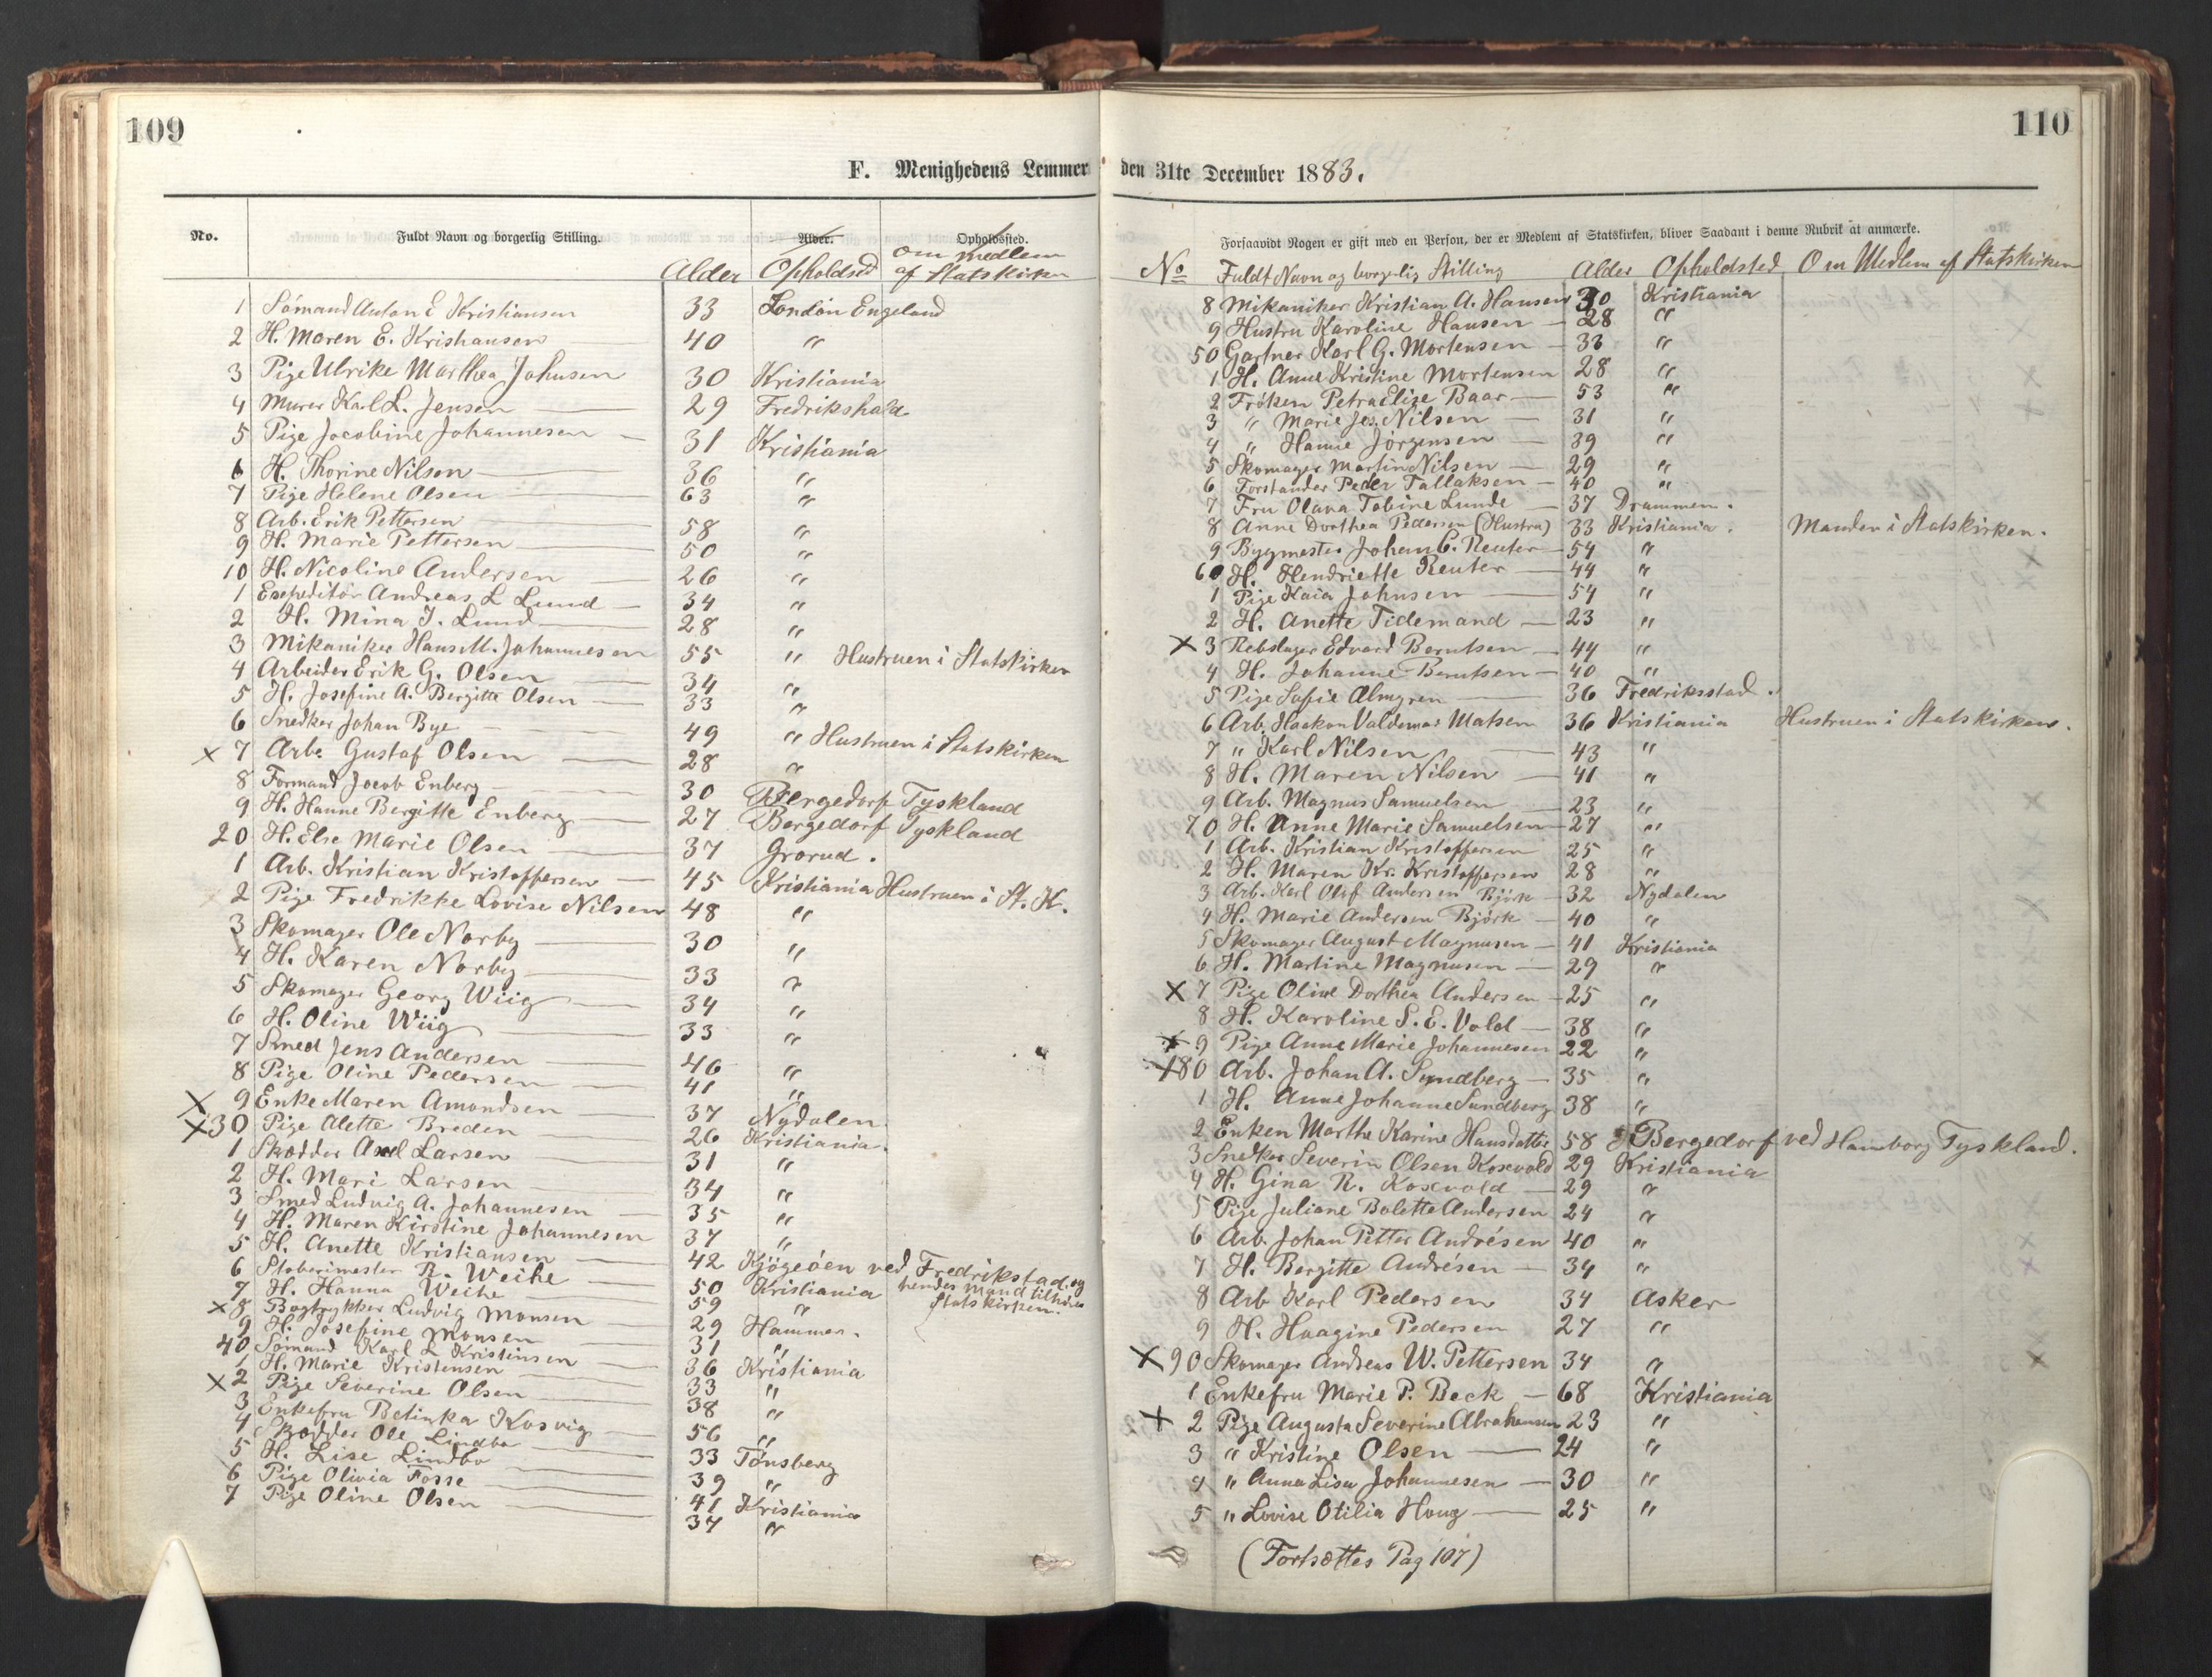 109
F. Menighedens Lemmer
No. Fuldt Navn og borgerlig Stilling. Alder. Opholdssted.
Alder Opholdsted om medlem af Statskirken
1 Sømand Anton E Kristiansen 33 London Engeland
2 H. Maren E. Kristiansen 40 "
3 Pige Ulrike Marthea Johnsen 30 Kristiania
4 Murer Karl L. Jensen 29 Fredrikshald
5 Pige Jocobine Johannesen 31 Kristiania
6 H. Thorine Nilsen 36 "
7 Pige Helene Olsen 63 "
8 Arb. Erik Pettersen 58 "
9 H. Marie Pettersen 50 "
10 H. Nicoline Andersen 26 "
1 Expeditør Andreas L Lund 34 "
2 H. Mina J. Lund 28 "
3 Mikaniker Hans M. Johannesen 55 " Hustruen i Statskirken
4 Arbeider Erik G. Olsen 34 "
5 H. Josefine A. Bergitte Olsen 33 "
6 Snedker Johan Bye 49 " Hustruen i Statskirken
x 7 Arb. Gustaf Olsen 28 "
8 Formand Jocob Enberg 30 Bergedorf Tyskland
9 H. Hanne Bergitte Enberg 27 Bergedorf Tyskland
20 H. Else Marie Olsen 37 Grorud.
1 Arb. Kristian Kristoffersen 45 Kristiania Hustruen i St. K.
2 Pige Fredrikke Lovise Nilsen 48 "
3 Skomager Ole Norby 30 "
4 H. Karen Norby 33 "
5 Skomager Georg Wiig 34 "
6 H. Oline Wiig 33 "
7 Smed Jens Andersen 46 "
8 Pige Oline Pedersen 41 "
x 9 Enke Maren Amondsen 37 Nydalen
x 30 Pige Alette Breden 26 Kristiania.
1 Skrædder Axel Larsen 31 "
2 H. Mari Larsen 34 "
3 Smed Ludvig A. Johannesen 35 "
4 H. Maren Kirstine Johannesen 37 "
5 H. Anette Kristiansen 42 Kjøgeöen ved Fredrikstad, og hendes Mand tilhører Statskirken.
6 R. Weihe 50 Kristiania
7 H. Hanna Weihe 59 "
x 8 Bogtrykker Ludvig Monsen 29 Hammer.
9 H. Josefine Monsen 31 "
40 Sømand Karl L Kristensen 36 Kristiania
1 H. Marie Kristensen 33 "
x 2 Pige Severine Olsen 38 "
3 Enkefru Betinka Kosvig 56 "
4 Skrædder Ole Lindbo 33 Tønsberg
5 H. Lise Lindbo 39 "
6 Pige Olivia Fosse 41 Kristiania
7 Pige Oline Olsen 37 "
110
den 31te December 1883.
Forsaavidt Nogen er gift med en Person, der er Medlem af Statskirken, bliver Saadant i denne Rubrik at anmærke.
No Fuldt Navn og borgerlig Stilling Alder Opholdsted Om Medlem af Statskirken
8 Mikaniker Kristian A. Hansen 30 Kristiania
9 Hustru Karoline Hansen 28 "
50 Gartner Karl G. Mortensen 33 "
1 H. Anne Kristine Mortensen 28 "
2 Frøken Petra Elise Baar 53 "
3 " Marie Jes. Nilsen 31 "
4 " Hanne Jörgensen 39 "
5 Skomager Martin Nilsen 29 "
6 Forstander Peder Tallaksen 40 "
7 Fru Olava Tobine Lunde 37 Drammen.
8 Anne Dorthea Pedersen (Hustru) 33 Kristiania. Manden i Statskirken.
9 Bygmester Johan C. Reuter 54 "
60 H. Hendriette Reuter 44 "
1 Pige Kaia Johnsen 54 "
2 H. Anette Tidemand 23 "
x 3 Rebslager Edvard Berntsen 44 "
4 H. Johanne Berntsen 40 "
5 Pige Sofie Almgren 36 Fredriksstad.
6 Arb. Haakon Valdemar Matsen 36 Kristiania Hustruen i Statskirken.
7 " Karl Nilsen 43 "
8 H. Maren Nilsen 41 "
9 Arb. Magnus Samuelsen 23 "
70 H. Anne Marie Samuelsen 27 "
1 Arb. Kristian Kristoffersen 25 "
2 H. Maren Kr. Kristoffersen 28 "
3 Arb. Karl Olof Andersen Björk 32 Nydalen
4 H. Marie Andersen Björk 40 "
5 Skomager August Magnusen 41 Kristiania
6 H. Martine Magnusen 29 "
x 7 Pige Olive Dorthea Andersen 25 "
8 H. Karoline S. E. Vold 38 "
x 9 Pige Anne Marie Johannesen 22 "
x 80 Arb. Johan A. Sundberg 35 "
1 H. Anne Johanne Sundberg 38 "
2 Enken Marthe Karine Hansdatter 58 Bergedorf ved Hamborg Tyskland.
3 Snedker Severin Olsen Koxvold 29 Kristiania
4 H. Gina R. Koxvold 29 "
5 Pige Juliane Bolette Andersen 24 "
6 Arb. Johan Petter Andrésen 40 "
7 H. Bergitte Andrésen 34 "
8 Arb Karl Pedersen 34 Asker
9 H. Haagine Pedersen 27 "
x 90 Skomager Andreas W. Pettersen 34 "
1 Enkefru Marie P. Beck 68 Kristiania
x 2 Pige Augusta Severine Abrahamsen 23 "
3 " Kristine Olsen 24 "
4 " Anna Lisa Johannesen 30 "
5 " Lovise Otilia Houg 25 "
(Fortsættes Pag 107)